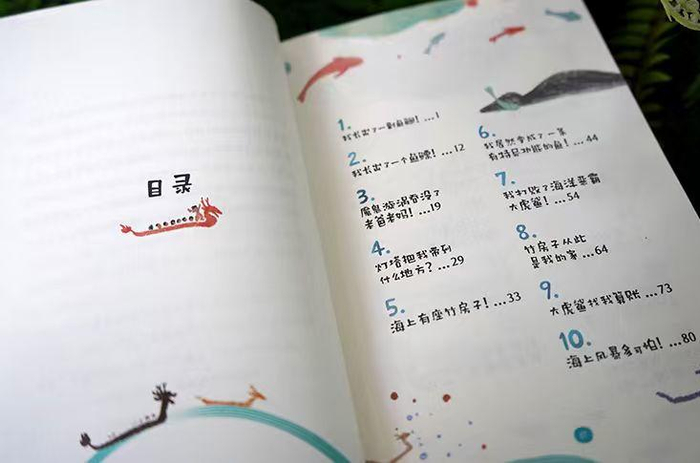 目录
1.
我长出了一对鱼鳃！...1
2.
我长出了一个鱼鳔！...12
3.
魔鬼漩涡吞没了
老爸老妈！...19
4.
灯塔把我带到
什么地方？...29
5.
海上有座竹房子！...33
6.
我居然变成了一条
有特异功能的鱼！...44
7.
我打败了海洋恶霸
大虎鲨！...54
8.
竹房子从此
是我的家...64
9.
大虎鲨找我算账...73
10.
海上风暴多可怕！...80